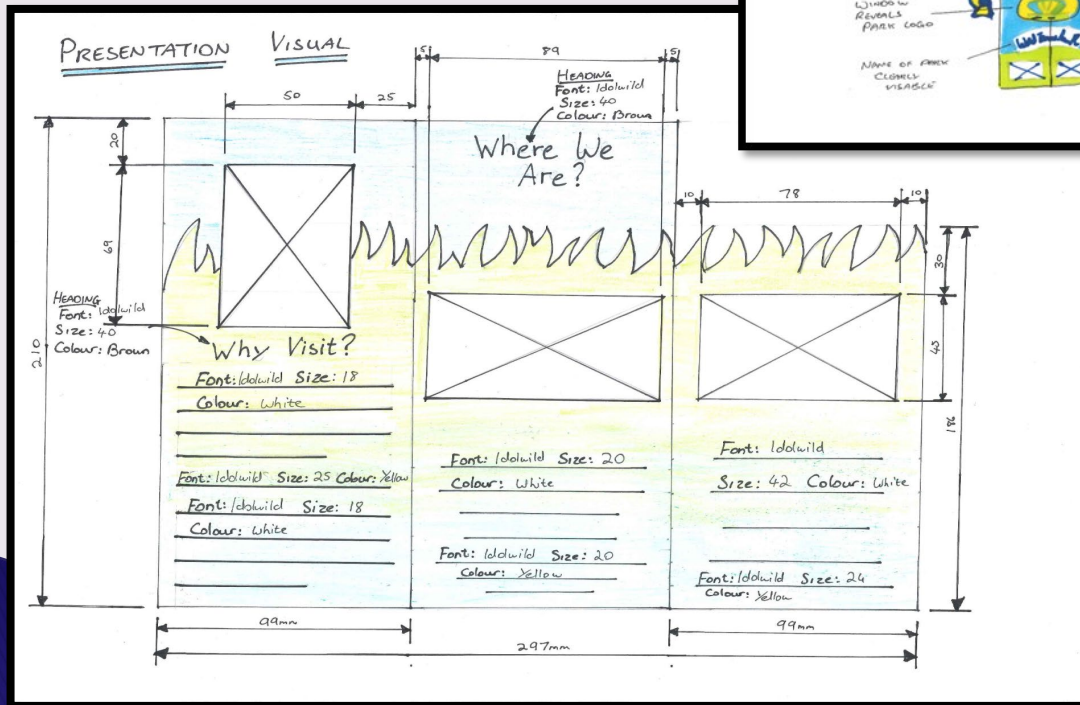 WINDOW
REVEALS
PARK LOGO
NAME OF PARK
CLEARLY
VISIBLE
PRESENTATION VISUAL
5 89 5
HEADING
Font: Idolwild
Size: 40
Colour: Brown
50 25
20
Where We
Are?
10 78 10
69
30
HEADING
Font: Idolwild
Size: 40
Colour: Brown
210
Why Visit?
45
181
Font: Idolwild Size: 18
Colour: White
Font: Idolwild Size: 25 Colour: Yellow
Font: Idolwild Size: 18
Colour: White
Font: Idolwild Size: 20
Colour: White
Font: Idolwild Size: 20
Colour: Yellow
Font: Idolwild
Size: 42 Colour: White
Font: Idolwild Size: 24
Colour: Yellow
99mm 99mm
297mm